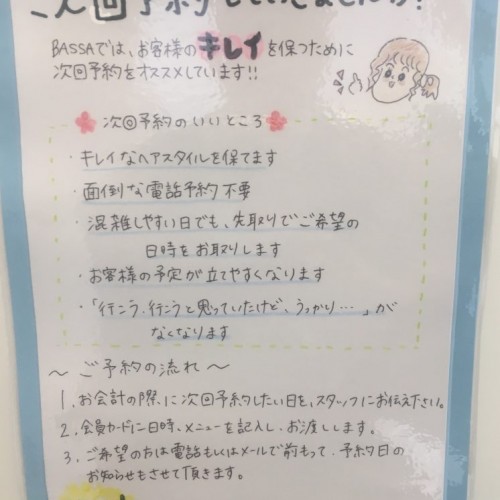 次回予約していきませんか?
BASSAでは、お客様のキレイを保つために
次回予約をオススメしています!!
次回予約のいいところ
・キレイなヘアスタイルを保てます
・面倒な電話予約不要
・混雑しやすい日でも、先取りでご希望の
日時をお取りします
・お客様の予定が立てやすくなります
・「行こう、行こうと思っていたけど、うっかり…」が
なくなります
〜ご予約の流れ〜
1. お会計の際に次回予約したい日を、スタッフにお伝え下さい。
2. 会員カードに日時、メニューを記入し、お渡しします。
3. ご希望の方は電話もしくはメールで前もって、予約日の
お知らせもさせて頂きます。